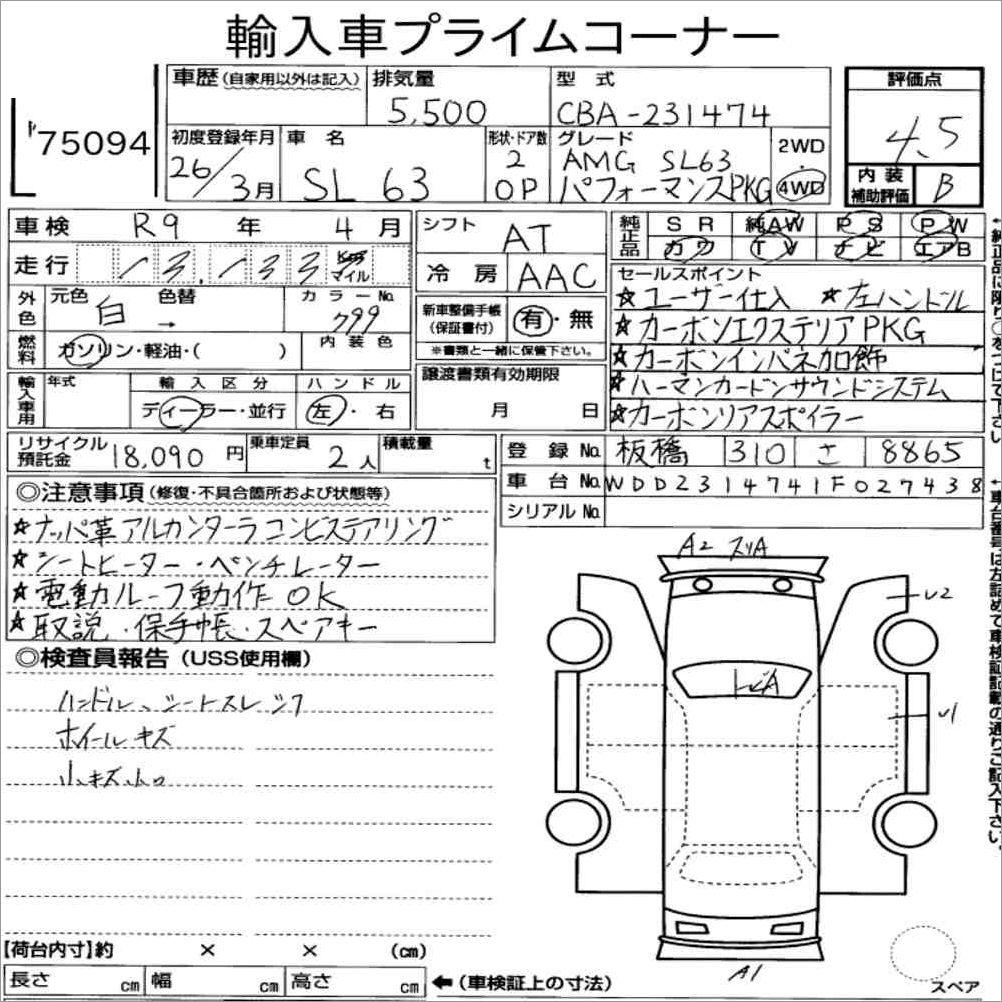 輸入車プライムコーナー
75094
車歴 (自家用以外は記入)
排気量
5,500
型式
CBA-231474
評価点
4.5
初度登録年月
26/3月
車名
SL 63
形状・ドア数
2
OP
グレード
AMG SL63
パフォーマンスPKG
2WD
・
4WD
内装
補助評価
B
車検 R9 年 4 月
シフト
AT
純正品
SR 純AW PS PW
カワ TV ナビ エアB
走行 13,133 マイル
冷房 AAC
セールスポイント
☆ユーザー仕入 ☆左ハンドル
☆カーボンエクステリアPKG
☆カーボンインパネ加飾
☆ハーマンカードンサウンドシステム
☆カーボンリアスポイラー
外色
元色 色替
白 →
カラーNo.
799
新車整備手帳
(保証書付)
有・無
※書類と一緒に保管下さい。
燃料
ガソリン・軽油・( )
内装色
輸入車用
年式
輸入区分
ディーラー・並行
ハンドル
左・右
譲渡書類有効期限
月 日
リサイクル
預託金
18,090 円
乗車定員
2 人
積載量
t
登録No. 板橋 310 さ 8865
車台No. WDD2314741F027438
シリアルNo.
◎注意事項 (修復・不具合箇所および状態等)
☆ナッパ革アルカンターラコンビステアリング
☆シートヒーター・ベンチレーター
☆電動ルーフ動作OK
☆取説・保手帳・スペアキー
◎検査員報告 (USS使用欄)
ハンドル、シートスレ シワ
ホイールキズ
小キズ
A2 スリA
U2
トビA
U1
A1
スペア
【荷台内寸】約 × × (cm)
長さ cm 幅 cm 高さ cm ←(車検証上の寸法)
↑純正品に限り○をつけて下さい
↑車台番号は左詰めで車検証記載の通りご記入下さい。